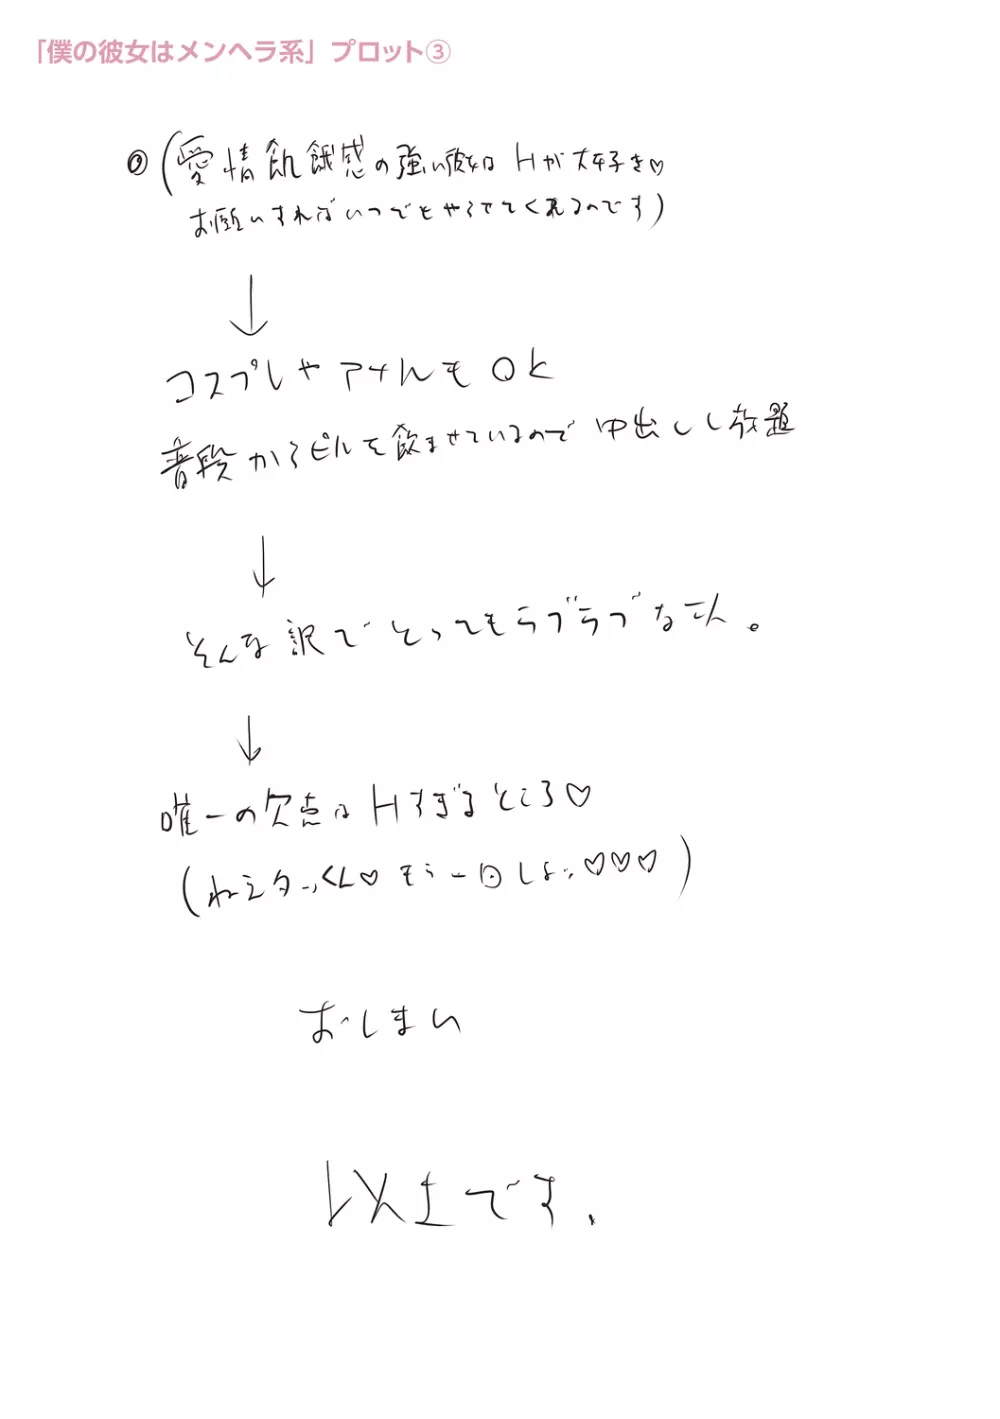 「僕の彼女はメンヘラ系」プロット③
(愛情飢餓感の強い彼女は Hが大好き♡
お願いすればいつでもやらせてくれるのです)
↓
コスプレや アナルも OK
普段からピルを飲ませているので 中出しし放題
↓
そんな訳で とってもラブラブな二人。
↓
唯一の欠点は Hすぎるところ♡
(ねえタっくん♡ もう一回しよ…♡♡♡)
おしまい
以上です.